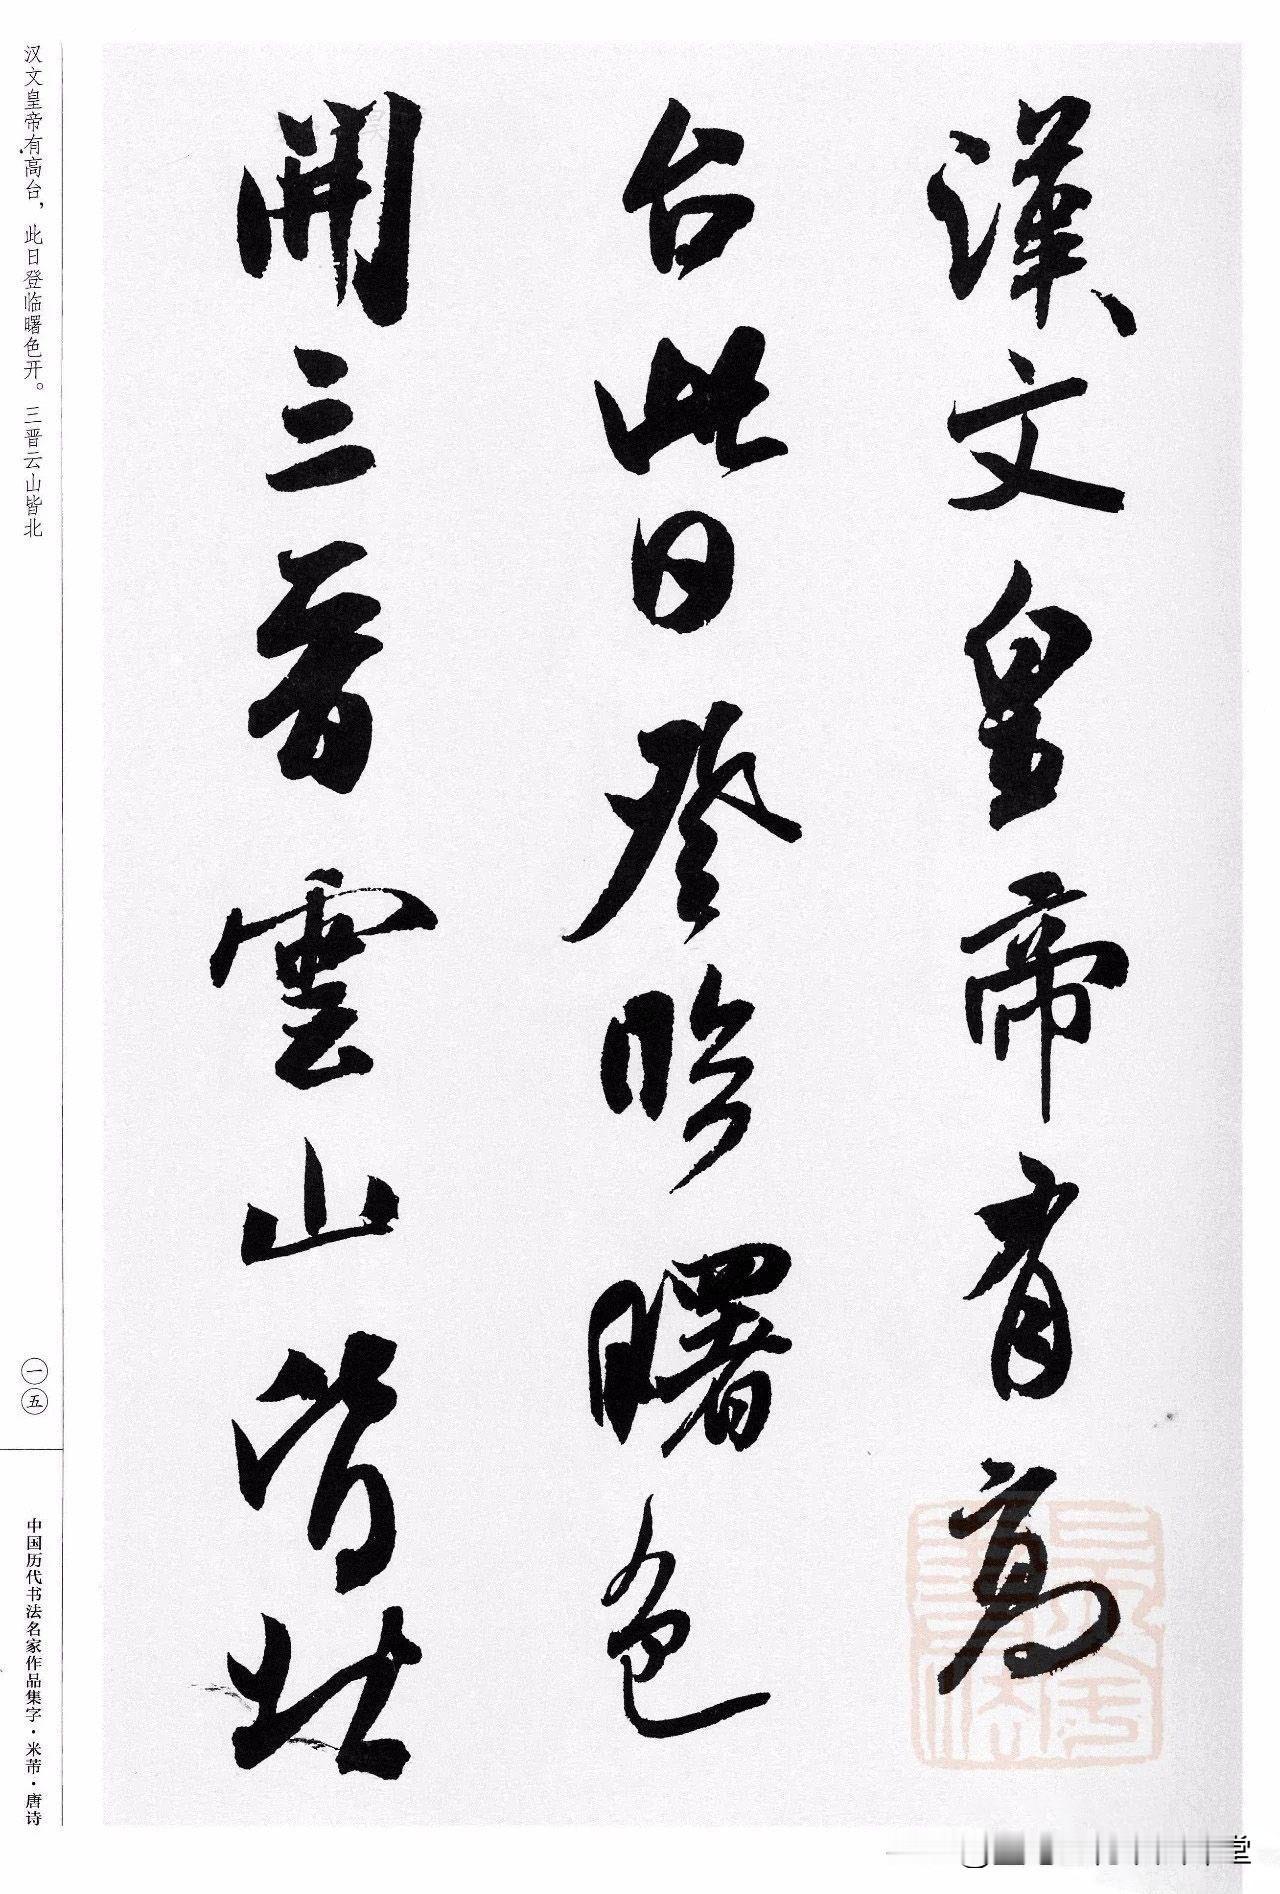 漢文皇帝有高
台此日登臨曙色
開三晉雲山皆北
汉文皇帝有高台，此日登临曙色开。三晋云山皆北
一五
中国历代书法名家作品集字·米芾·唐诗
堂